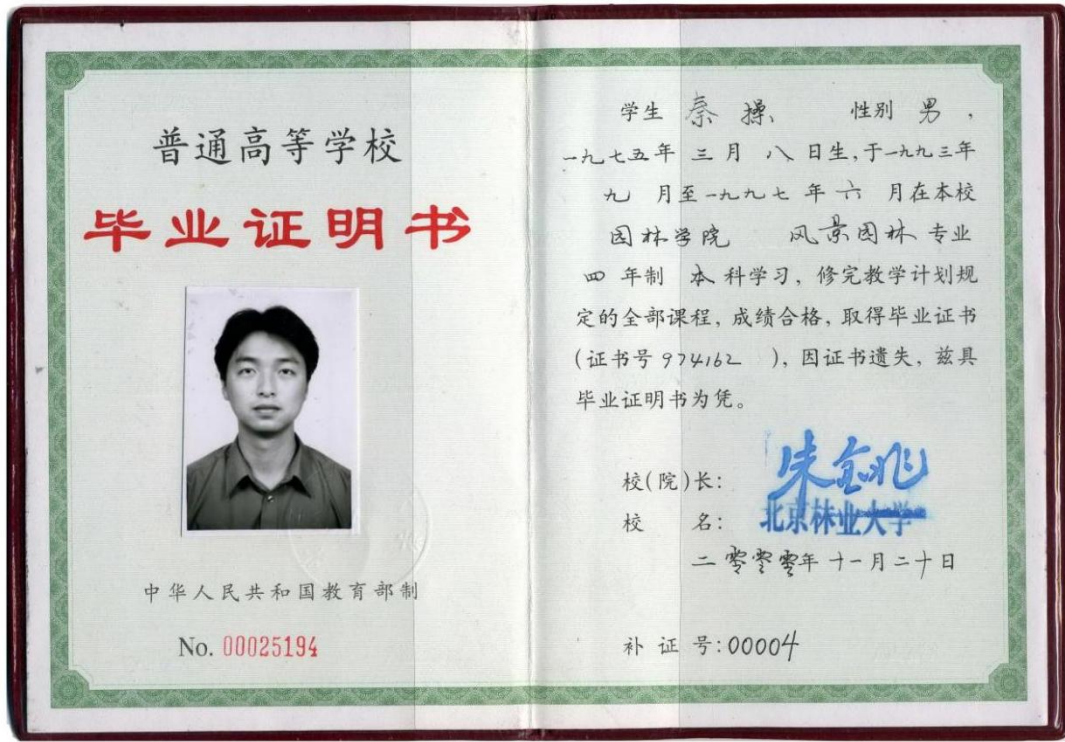 普通高等学校
毕业证明书
中华人民共和国教育部制
No. 00025194
学生 秦操 性别 男,
一九七五年 三月 八日生,于一九九三年
九 月至一九九七 年 六 月在本校
园林学院 风景园林 专业
四 年制 本 科学习, 修完教学计划规
定的全部课程, 成绩合格, 取得毕业证书
(证书号974162 ), 因证书遗失, 兹具
毕业证明书为凭。
校(院)长: 朱金兆
校 名: 北京林业大学
二零零零年十一月二十日
补 证 号:00004